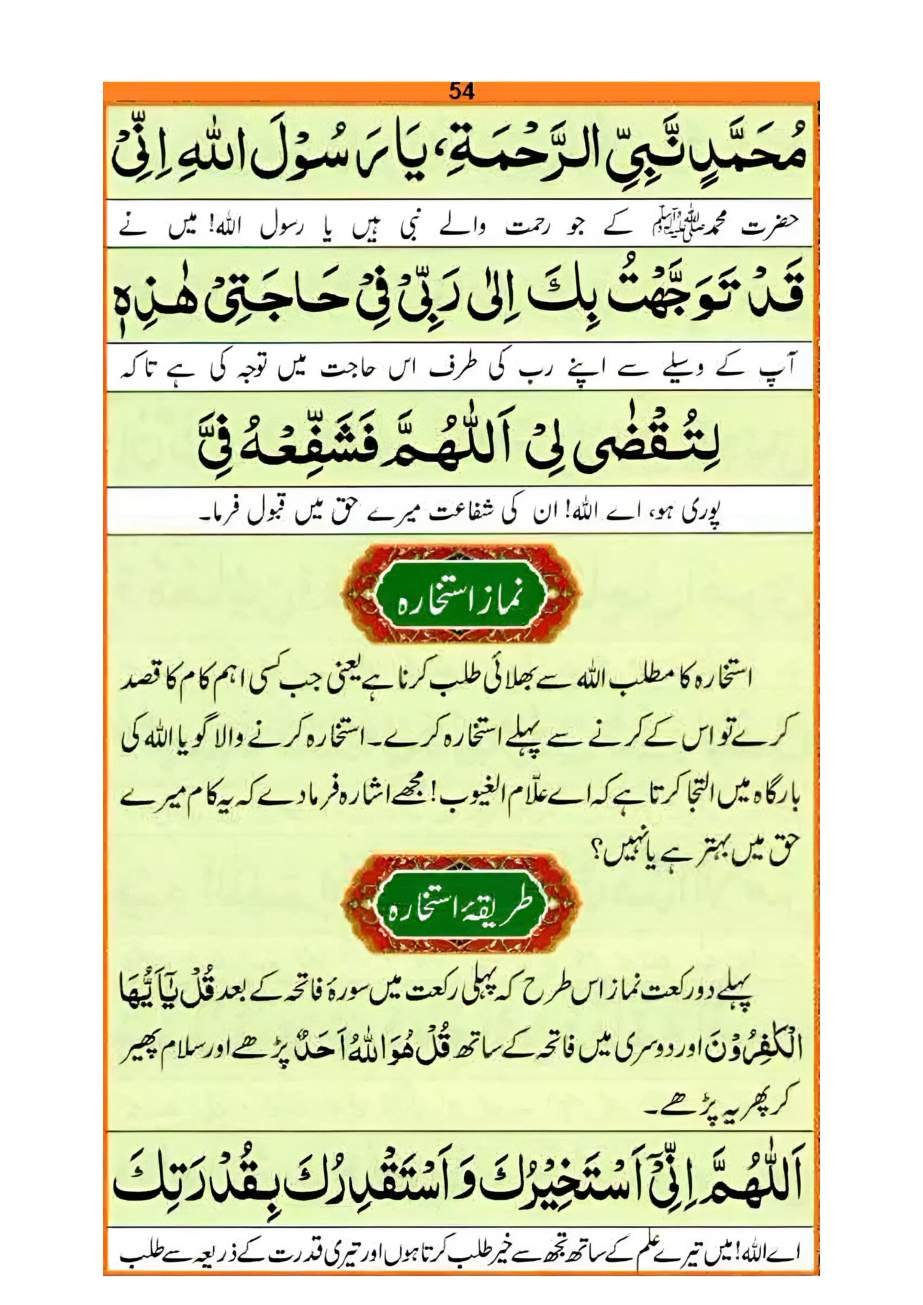 54
مُحَمَّدٍ نَّبِيِّ الرَّحْمَةِ، يَا رَسُوْلَ اللّٰهِ اِنِّيْ
حضرت محمد ﷺ کے جو رحمت والے نبی ہیں یا رسول اللہ! میں نے
قَدْ تَوَجَّهْتُ بِكَ اِلٰى رَبِّيْ فِيْ حَاجَتِيْ هٰذِهٖ
آپ کے وسیلے سے اپنے رب کی طرف اس حاجت میں توجہ کی ہے تاکہ
لِتُقْضٰى لِيْ اَللّٰهُمَّ فَشَفِّعْهُ فِيَّ
پوری ہو، اے اللہ! ان کی شفاعت میرے حق میں قبول فرما۔
نماز استخارہ
استخارہ کا مطلب اللہ سے بھلائی طلب کرنا ہے یعنی جب کسی اہم کام کا قصد
کرے تو اس کے کرنے سے پہلے استخارہ کرے۔ استخارہ کرنے والا گویا اللہ کی
بارگاہ میں التجا کرتا ہے کہ اے علّام الغیوب! مجھے اشارہ فرما دے کہ یہ کام میرے
حق میں بہتر ہے یا نہیں؟
طریقۂ استخارہ
پہلے دو رکعت نماز اس طرح کہ پہلی رکعت میں سورۂ فاتحہ کے بعد قُلْ يٰٓاَيُّهَا
الْكٰفِرُوْنَ اور دوسری میں فاتحہ کے ساتھ قُلْ هُوَ اللّٰهُ اَحَدٌ پڑھے اور سلام پھیر
کر پھر یہ پڑھے۔
اَللّٰهُمَّ اِنِّيْٓ اَسْتَخِيْرُكَ وَ اَسْتَقْدِرُكَ بِقُدْرَتِكَ
اے اللہ! میں تیرے علم کے ساتھ تجھ سے خیر طلب کرتا ہوں اور تیری قدرت کے ذریعہ سے طلب